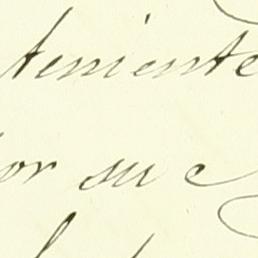 teniente
or su c